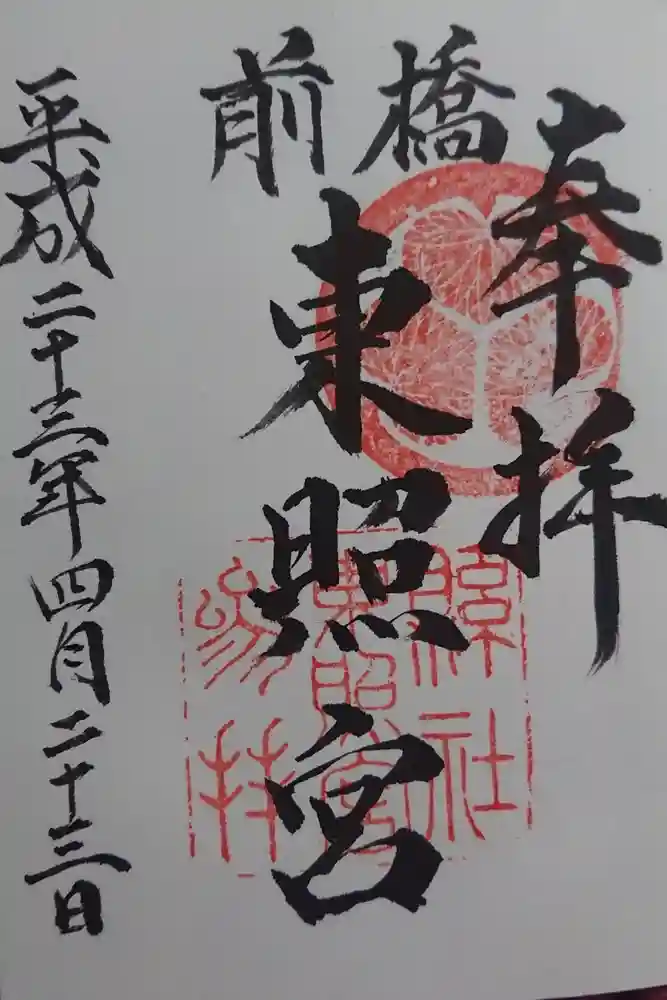 奉拝
前橋
東照宮
平成二十三年四月二十三日
縣社
東照宮